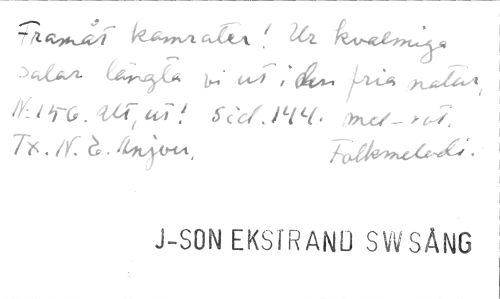 Framåt kamrater! Ur kvalmiga
salar längta vi ut i den fria natur,
N. 156. Ut, ut! Sid. 144. mel-röt.
Tx. N. E. Anjou. Folkmelodi.
J-SON EKSTRAND SW SÅNG